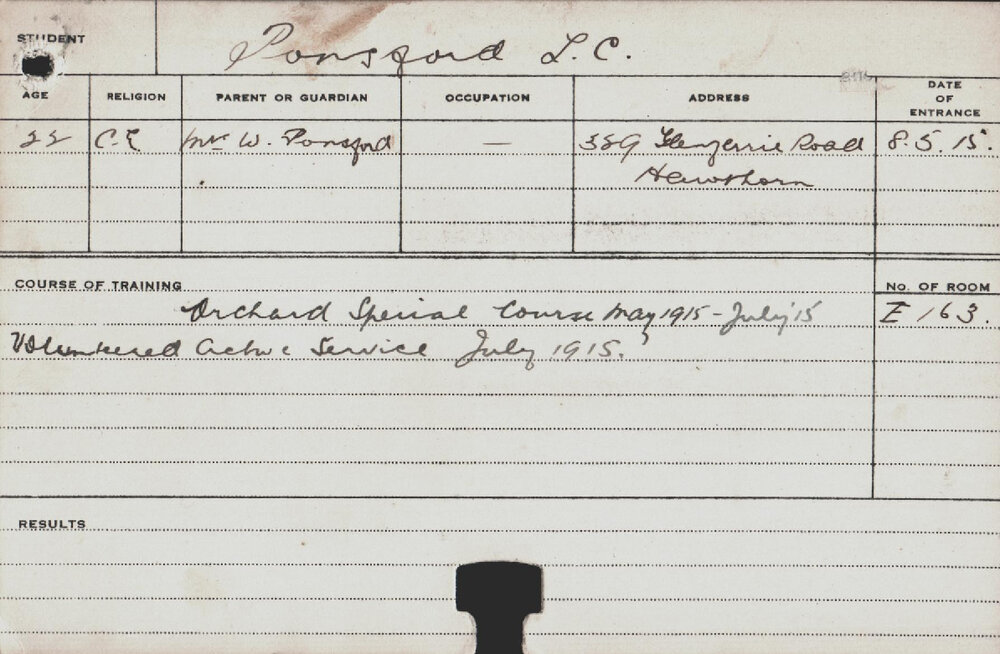 STUDENT
Ponsford L.C.
AGE
RELIGION
PARENT OR GUARDIAN
OCCUPATION
ADDRESS
DATE
OF
ENTRANCE
22
C.E
Mr W. Ponsford
—
Road
8.5.15.
Hawthorn
COURSE OF TRAINING
No. OF ROOM
Orchard Special Course May 1915 - July '15
E 163.
Volunteered Active Service July 1915.
RESULTS